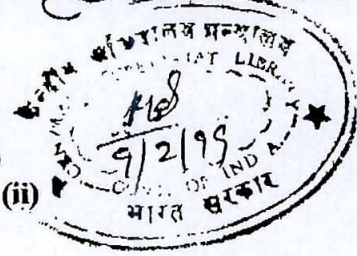 केन्द्रीय सचिवालय ग्रन्थालय
CENTRAL SECRETARIAT LIBRARY
9/2/95
GOVT. OF INDIA
(ii)
भारत सरकार